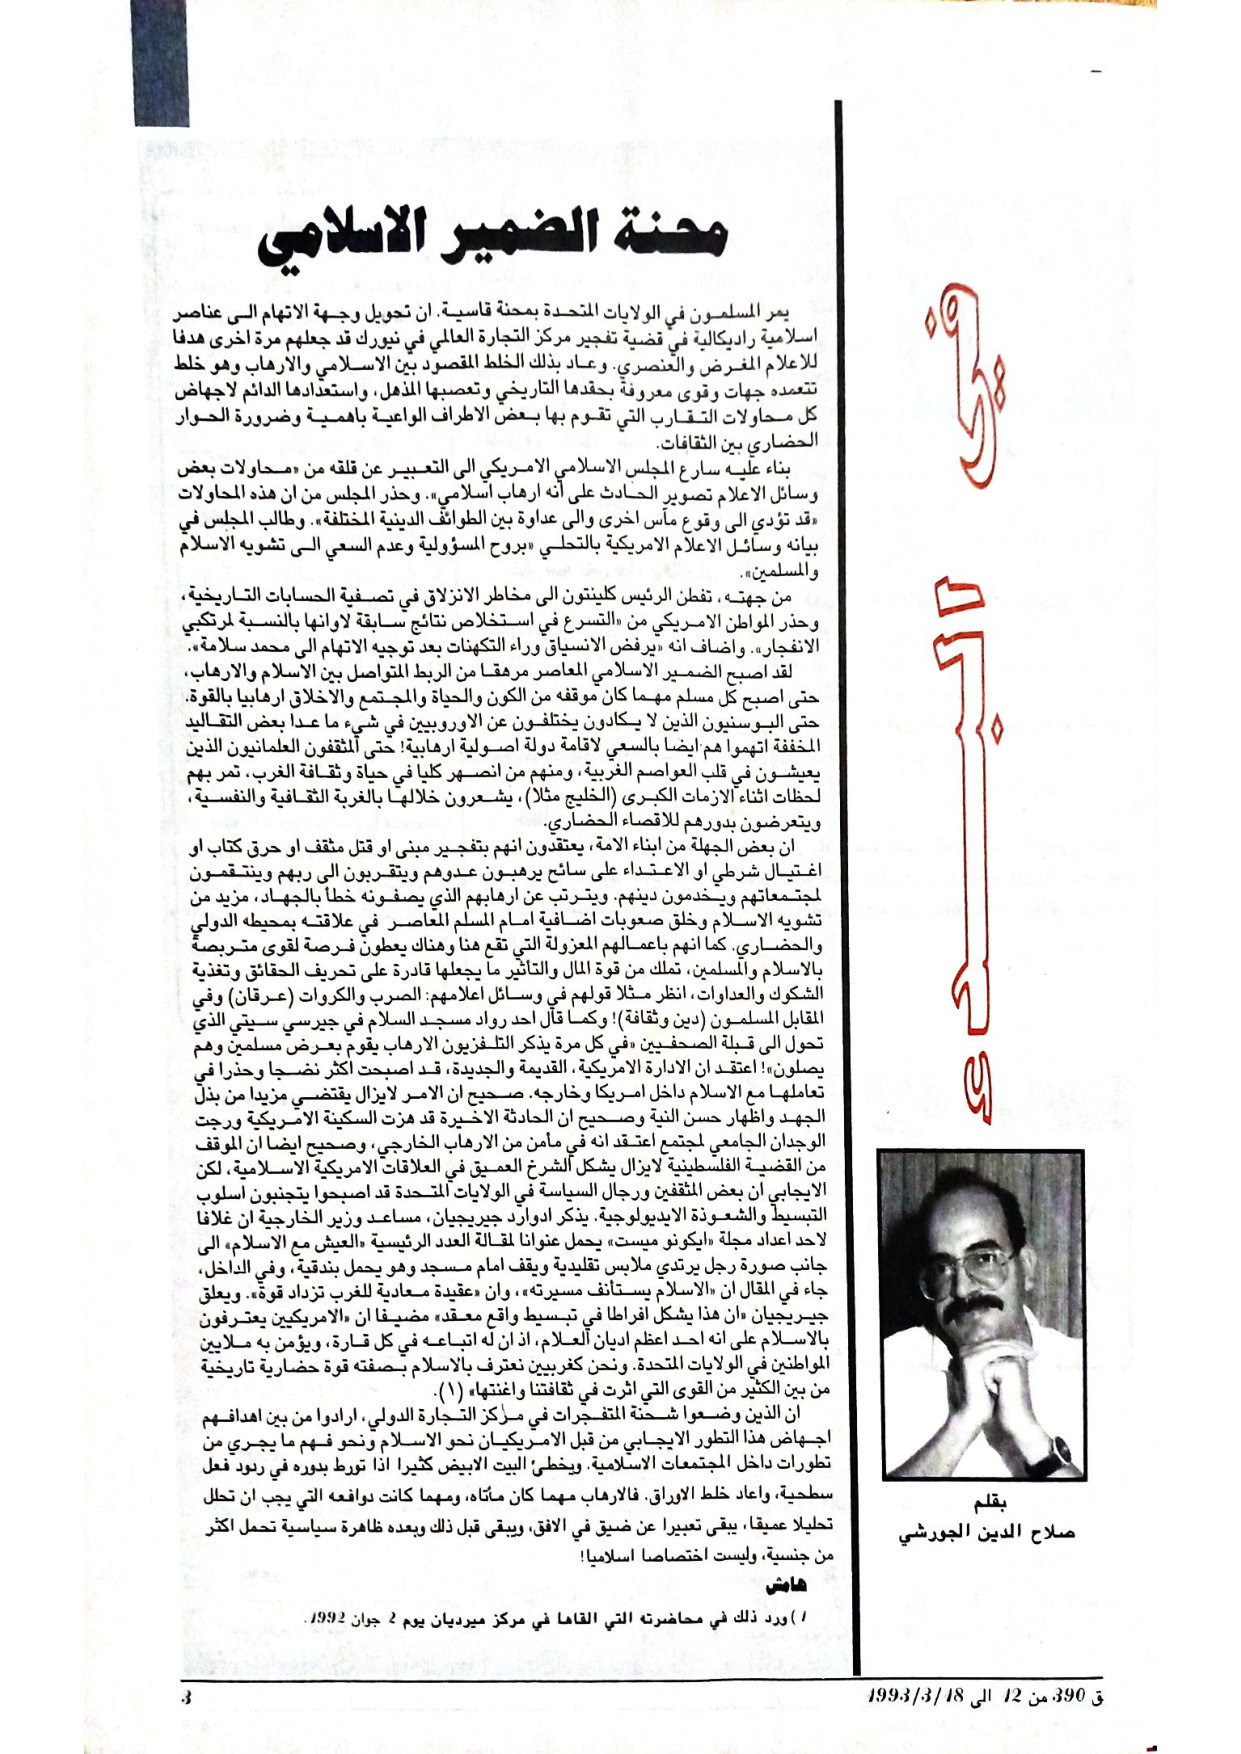 محنة الضمير الاسلامي
يمر المسلمون في الولايات المتحدة بمحنة قاسية. ان تحويل وجهة الاتهام الى عناصر
اسلامية راديكالية في قضية تفجير مركز التجارة العالمي في نيورك قد جعلهم مرة اخرى هدفا
للاعلام المغرض والعنصري. وعاد بذلك الخلط المقصود بين الاسلامي والارهاب وهو خلط
تتعمده جهات وقوى معروفة بحقدها التاريخي وتعصبها المذهل، واستعدادها الدائم لاجهاض
كل محاولات التقارب التي تقوم بها بعض الاطراف الواعية باهمية وضرورة الحوار
الحضاري بين الثقافات.
بناء عليه سارع المجلس الاسلامي الامريكي الى التعبير عن قلقه من «محاولات بعض
وسائل الاعلام تصوير الحادث على أنه ارهاب اسلامي». وحذر المجلس من ان هذه المحاولات
«قد تؤدي الى وقوع مآس اخرى والى عداوة بين الطوائف الدينية المختلفة». وطالب المجلس في
بيانه وسائل الاعلام الامريكية بالتحلي «بروح المسؤولية وعدم السعي الى تشويه الاسلام
والمسلمين».
من جهته، تفطن الرئيس كلينتون الى مخاطر الانزلاق في تصفية الحسابات التاريخية،
وحذر المواطن الامريكي من «التسرع في استخلاص نتائج سابقة لاوانها بالنسبة لمرتكبي
الانفجار». واضاف انه «يرفض الانسياق وراء التكهنات بعد توجيه الاتهام الى محمد سلامة».
لقد اصبح الضمير الاسلامي المعاصر مرهقا من الربط المتواصل بين الاسلام والارهاب،
حتى اصبح كل مسلم مهما كان موقفه من الكون والحياة والمجتمع والاخلاق ارهابيا بالقوة.
حتى البوسنيون الذين لا يكادون يختلفون عن الاوروبيين في شيء ما عدا بعض التقاليد
المخففة اتهموا هم ايضا بالسعي لاقامة دولة اصولية ارهابية! حتى المثقفون العلمانيون الذين
يعيشون في قلب العواصم الغربية، ومنهم من انصهر كليا في حياة وثقافة الغرب، تمر بهم
لحظات اثناء الازمات الكبرى (الخليج مثلا)، يشعرون خلالها بالغربة الثقافية والنفسية،
ويتعرضون بدورهم للاقصاء الحضاري.
ان بعض الجهلة من ابناء الامة، يعتقدون انهم بتفجير مبنى او قتل مثقف او حرق كتاب او
اغتيال شرطي او الاعتداء على سائح يرهبون عدوهم ويتقربون الى ربهم وينتقمون
لمجتمعاتهم ويخدمون دينهم. ويترتب عن ارهابهم الذي يصفونه خطأ بالجهاد، مزيد من
تشويه الاسلام وخلق صعوبات اضافية امام المسلم المعاصر في علاقته بمحيطه الدولي
والحضاري. كما انهم باعمالهم المعزولة التي تقع هنا وهناك يعطون فرصة لقوى متربصة
بالاسلام والمسلمين، تملك من قوة المال والتأثير ما يجعلها قادرة على تحريف الحقائق وتغذية
الشكوك والعداوات، انظر مثلا قولهم في وسائل اعلامهم: الصرب والكروات (عرقان) وفي
المقابل المسلمون (دين وثقافة)! وكما قال احد رواد مسجد السلام في جيرسي سيتي الذي
تحول الى قبلة الصحفيين «في كل مرة يذكر التلفزيون الارهاب يقوم بعرض مسلمين وهم
يصلون»! اعتقد ان الادارة الامريكية، القديمة والجديدة، قد اصبحت اكثر نضجا وحذرا في
تعاملها مع الاسلام داخل امريكا وخارجه. صحيح ان الامر لايزال يقتضي مزيدا من بذل
الجهد واظهار حسن النية وصحيح ان الحادثة الاخيرة قد هزت السكينة الامريكية ورجت
الوجدان الجامعي لمجتمع اعتقد انه في مأمن من الارهاب الخارجي، وصحيح ايضا ان الموقف
من القضية الفلسطينية لايزال يشكل الشرخ العميق في العلاقات الامريكية الاسلامية، لكن
الايجابي ان بعض المثقفين ورجال السياسة في الولايات المتحدة قد اصبحوا يتجنبون اسلوب
التبسيط والشعوذة الايديولوجية. يذكر ادوارد جيريجيان، مساعد وزير الخارجية ان غلافا
لاحد اعداد مجلة «ايكونو ميست» يحمل عنوانا لمقالة العدد الرئيسية «العيش مع الاسلام» الى
جانب صورة رجل يرتدي ملابس تقليدية ويقف امام مسجد وهو يحمل بندقية، وفي الداخل،
جاء في المقال ان «الاسلام يستأنف مسيرته»، وان «عقيدة معادية للغرب تزداد قوة». ويعلق
جيريجيان «ان هذا يشكل افراطا في تبسيط واقع معقد» مضيفا ان «الامريكين يعترفون
بالاسلام على انه احد اعظم اديان العلام، اذ ان له اتباعه في كل قارة، ويؤمن به ملايين
المواطنين في الولايات المتحدة. ونحن كغربيين نعترف بالاسلام بصفته قوة حضارية تاريخية
من بين الكثير من القوى التي اثرت في ثقافتنا واغنتها» (١).
ان الذين وضعوا شحنة المتفجرات في مركز التجارة الدولي، ارادوا من بين اهدافهم
اجهاض هذا التطور الايجابي من قبل الامريكيان نحو الاسلام ونحو فهم ما يجري من
تطورات داخل المجتمعات الاسلامية. ويخطئ البيت الابيض كثيرا اذا تورط بدوره في ردود فعل
سطحية، واعاد خلط الاوراق. فالارهاب مهما كان مأتاه، ومهما كانت دوافعه التي يجب ان تحلل
تحليلا عميقا، يبقى تعبيرا عن ضيق في الافق، ويبقى قبل ذلك وبعده ظاهرة سياسية تحمل اكثر
من جنسية، وليست اختصاصا اسلاميا!
هامش
1) ورد ذلك في محاضرته التي القاها في مركز ميرديان يوم 2 جوان 1992.
في البدء
بقلم
صلاح الدين الجورشي
ق 390 من 12 الى 1993/3/18
3